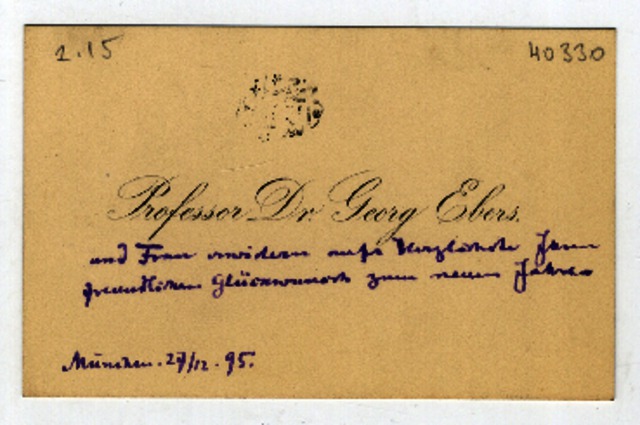 2.15
40330
Professor Dr. Georg Ebers.
und Frau erwidern aufs Herzlichste Ihren
freundlichen Glückwunsch zum neuen Jahre
München. 27/12. 95.